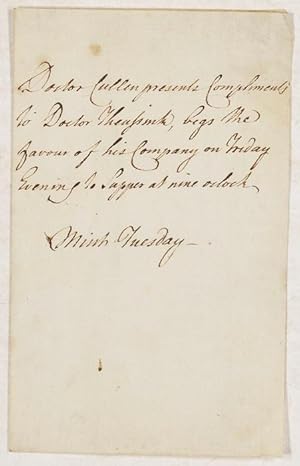 Doctor Cullen presents Compliments
to Doctor Theussink, begs the
favour of his Company on Friday
Evening to Supper at nine oclock
Mint Tuesday –